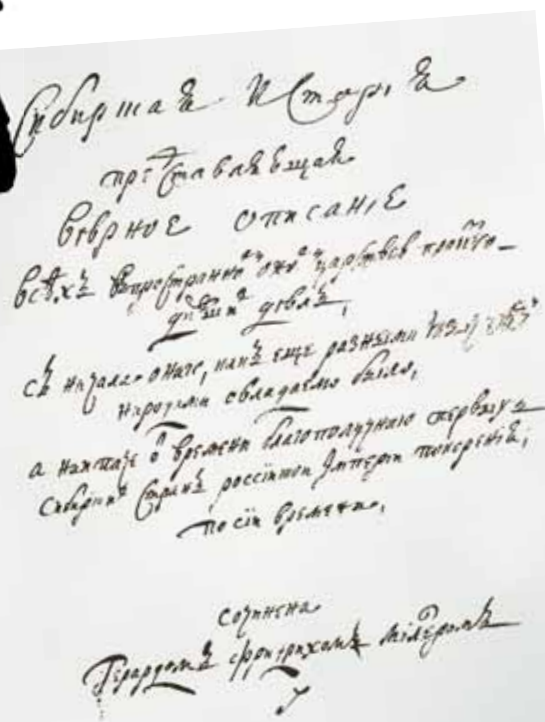 Сибирская исторїя
представляющая
вѣрное описанїе
всѣхъ в пространномъ ономъ царствѣ произхо-
дившихъ дѣлъ,
съ начала онаго, какъ еще разными
народами обладаемо было,
а наипаче ѿ времени благополучнаго перваго
Сибирскихъ странъ россїйской Имперїи покоренїя,
по сїи времена,
сочинена
Герардомъ Фридрихомъ Миллеромъ